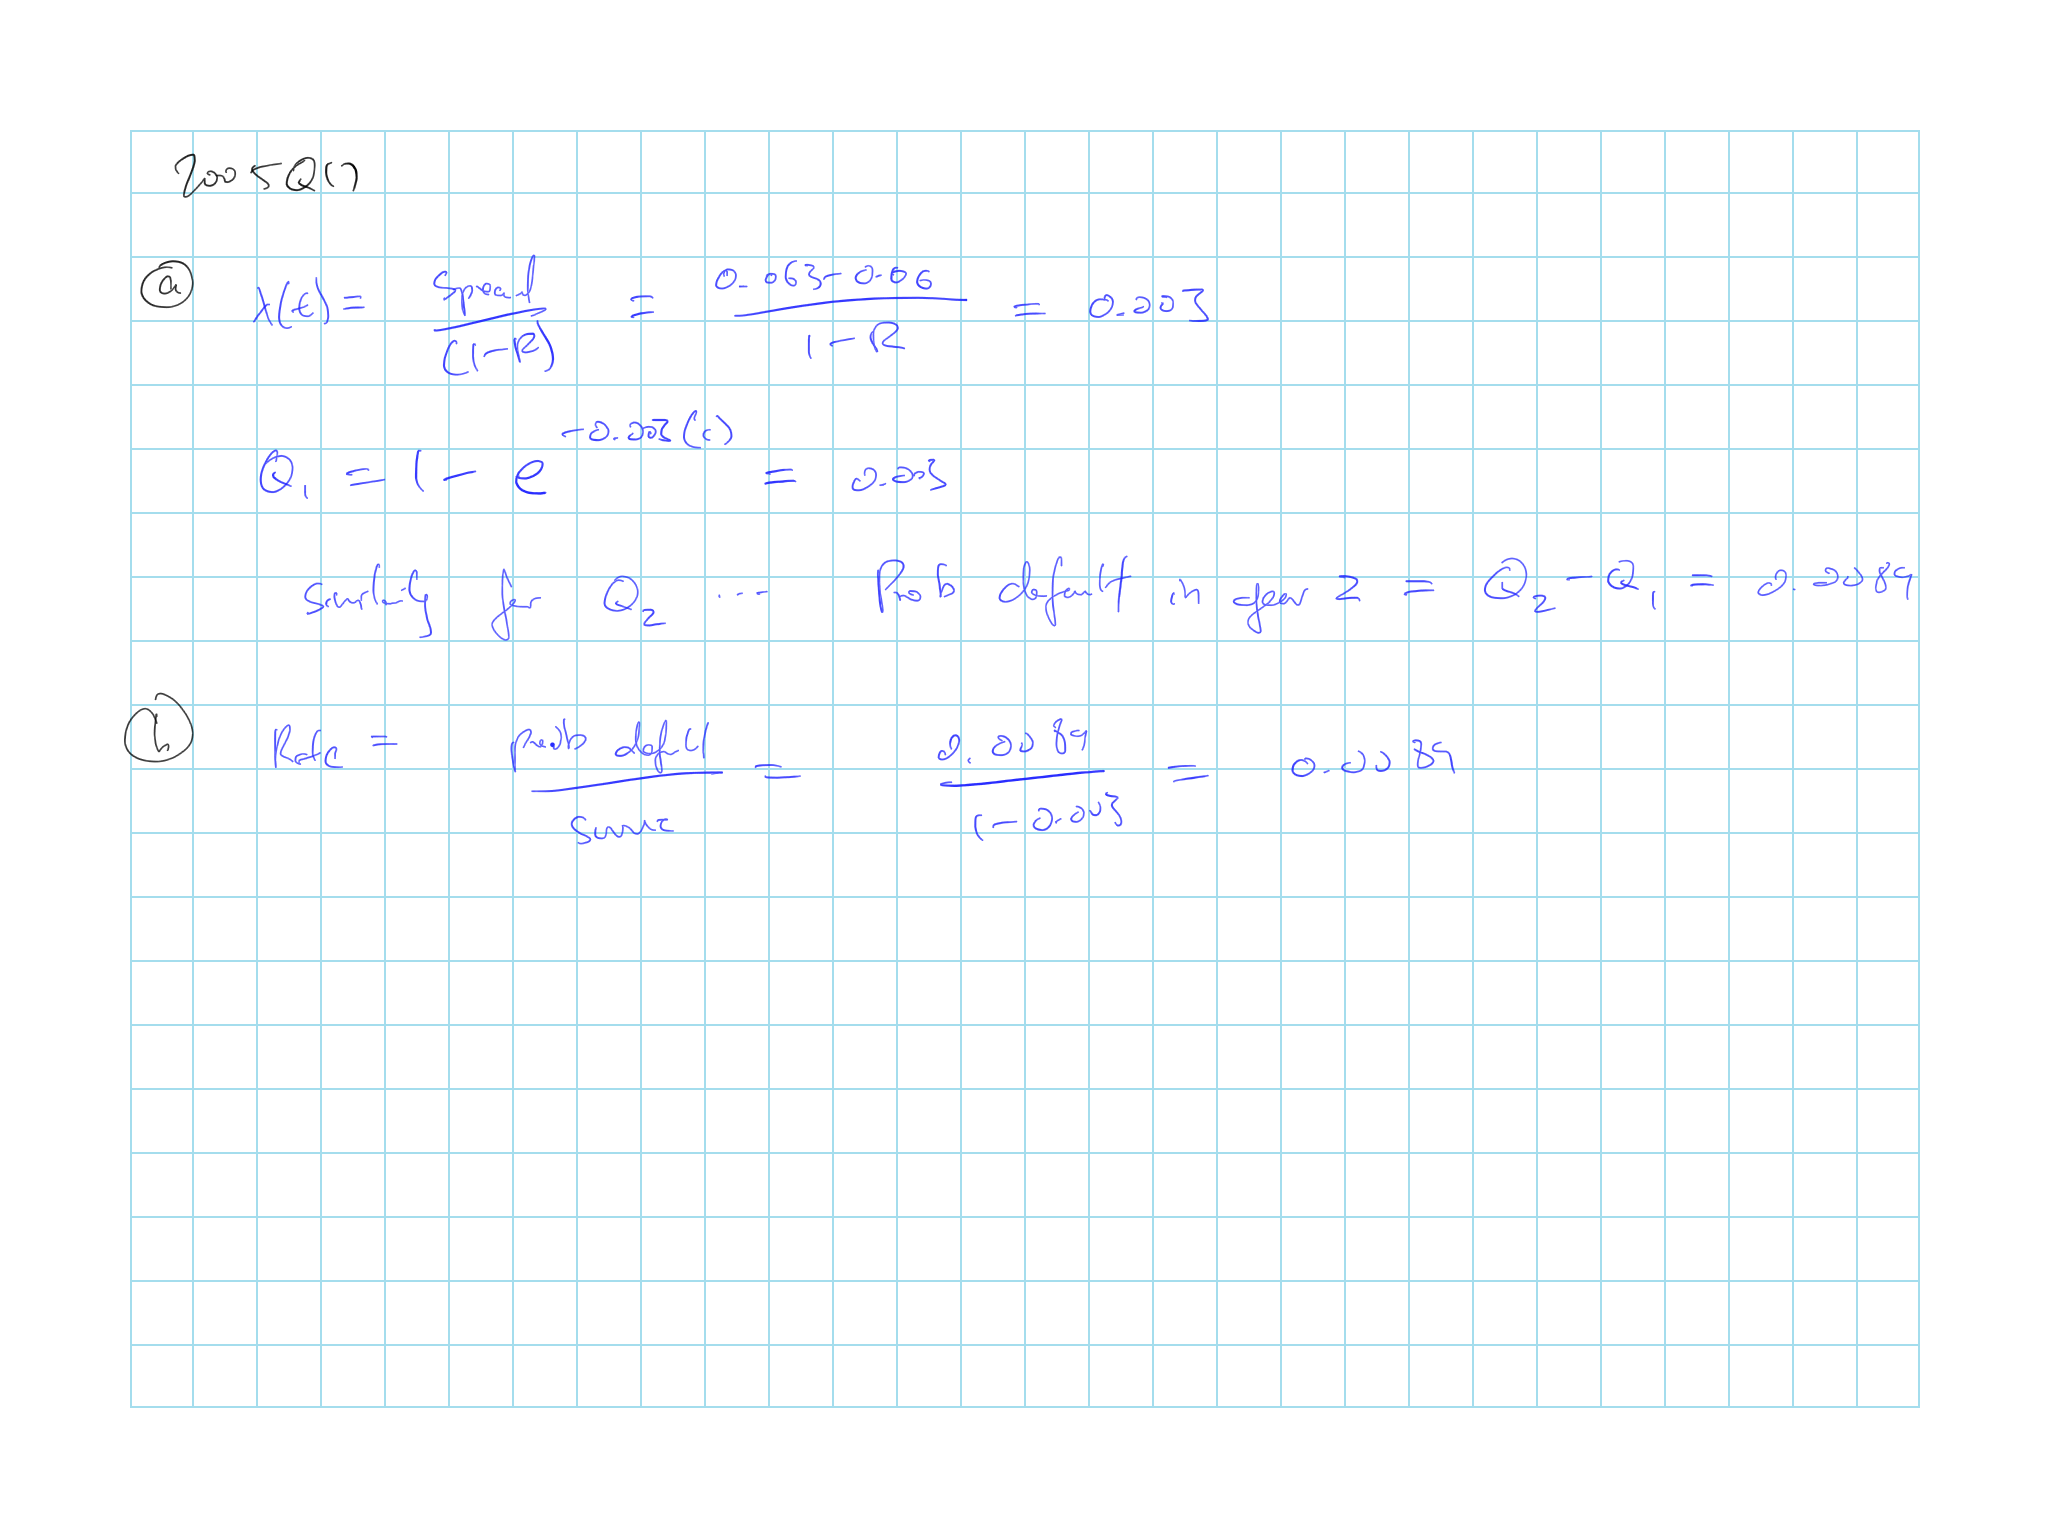 2005 Q17
(a) λ(t) = Spread / (1-R) = 0.063-0.06 / 1-R = 0.003
Q₁ = 1 - e^{-0.003(1)} = 0.003
Similarly for Q₂ ... Prob default in year 2 = Q₂ - Q₁ = 0.0089
(b) Rate = prob default / survive = 0.0089 / (1-0.003) = 0.0089